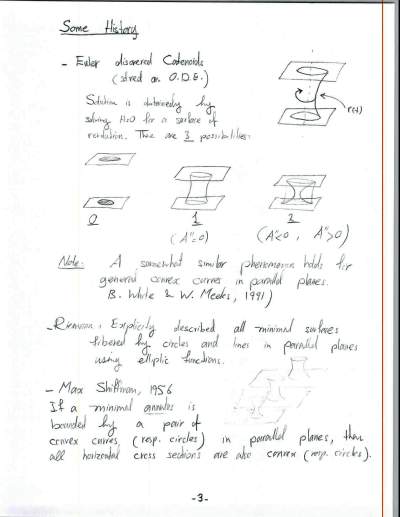 Some History
- Euler discovered Catenoids
(solved an O.D.E.)
Solution is determined by
solving H≡0 for a surface of
revolution. There are 3 possibilities:
r(t)
0
1
2
(A"=0)
(A"<0, A">0)
Note: A somewhat similar phenomenon holds for
general convex curves in parallel planes.
B. White & W. Meeks, 1991)
- Riemann: Explicitly described all minimal surfaces
fibered by circles and lines in parallel planes
using elliptic functions.
- Max Shiffman, 1956
If a minimal annulus is
bounded by a pair of
convex curves, (resp. circles) in parallel planes, then
all horizontal cross sections are also convex (resp. circles).
-3-